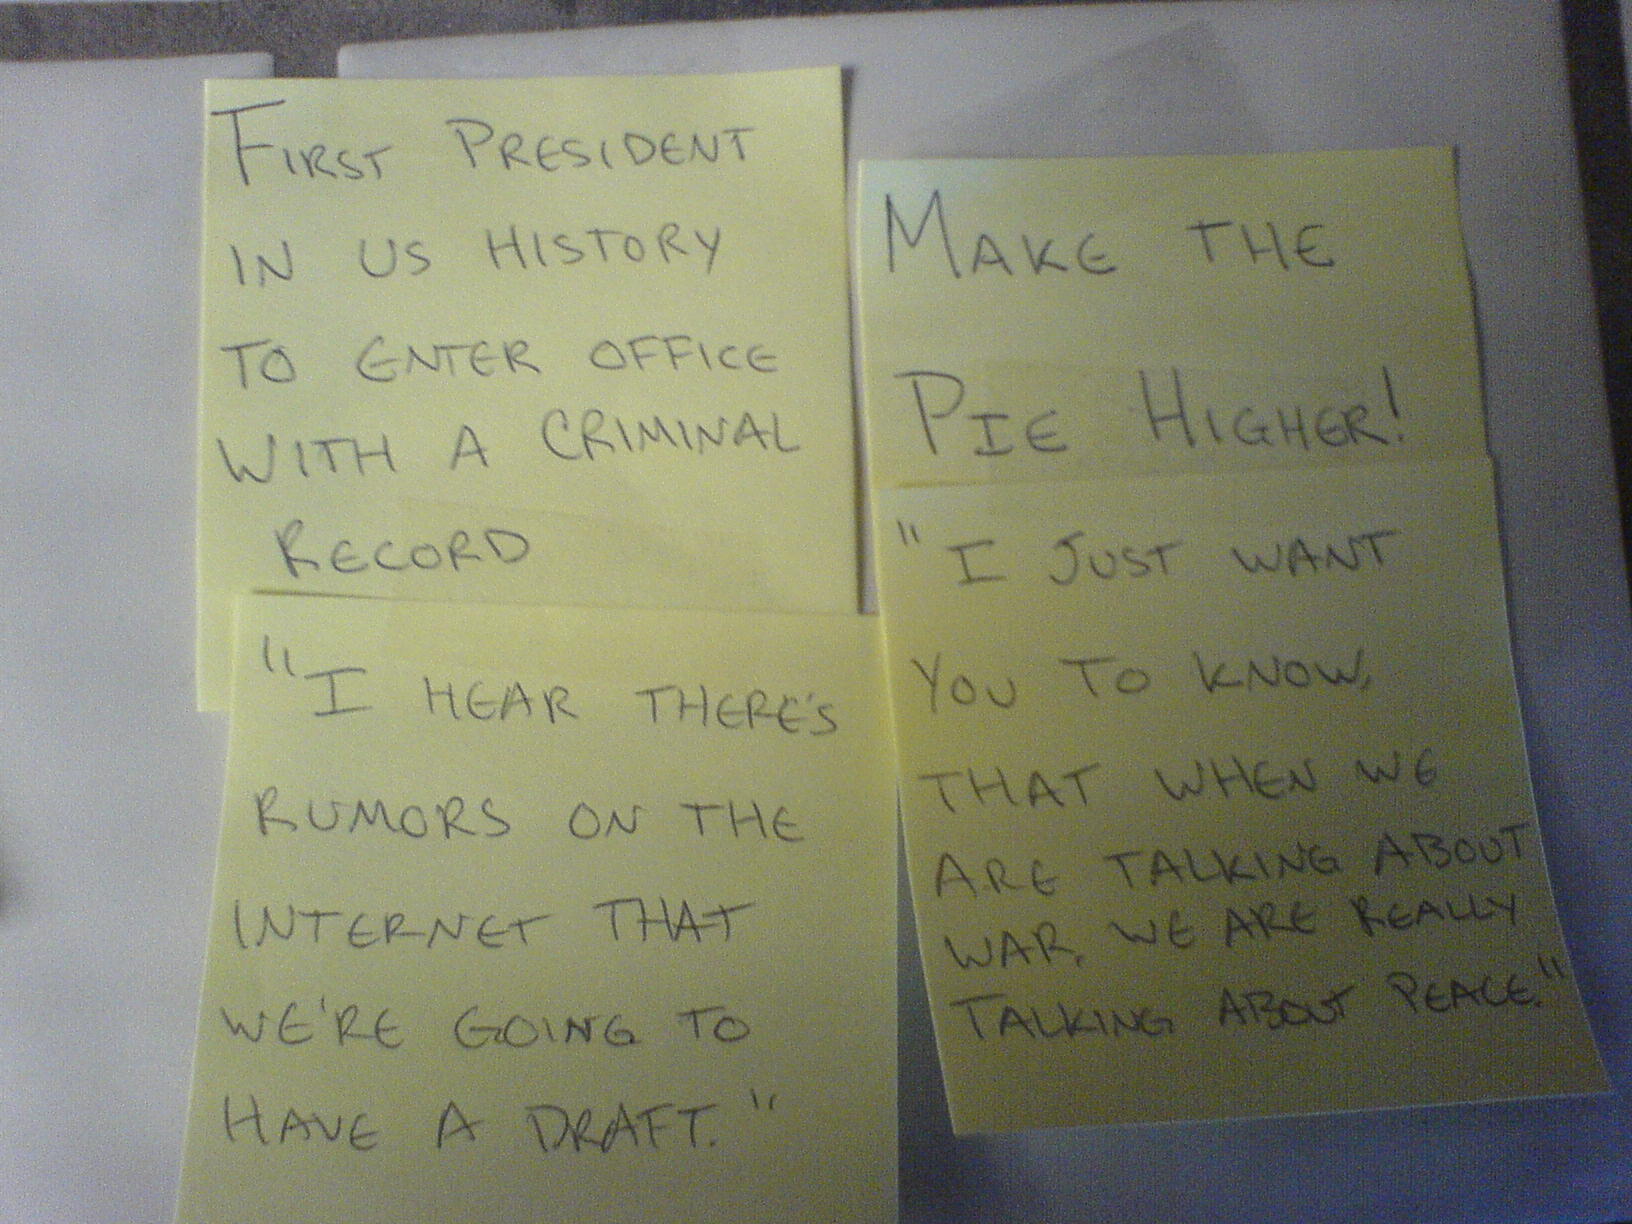 First President
in US history
to enter office
with a criminal
record
"I hear there's
rumors on the
internet that
we're going to
have a draft."
Make the
Pie Higher!
"I just want
you to know,
that when we
are talking about
war, we are really
talking about peace."